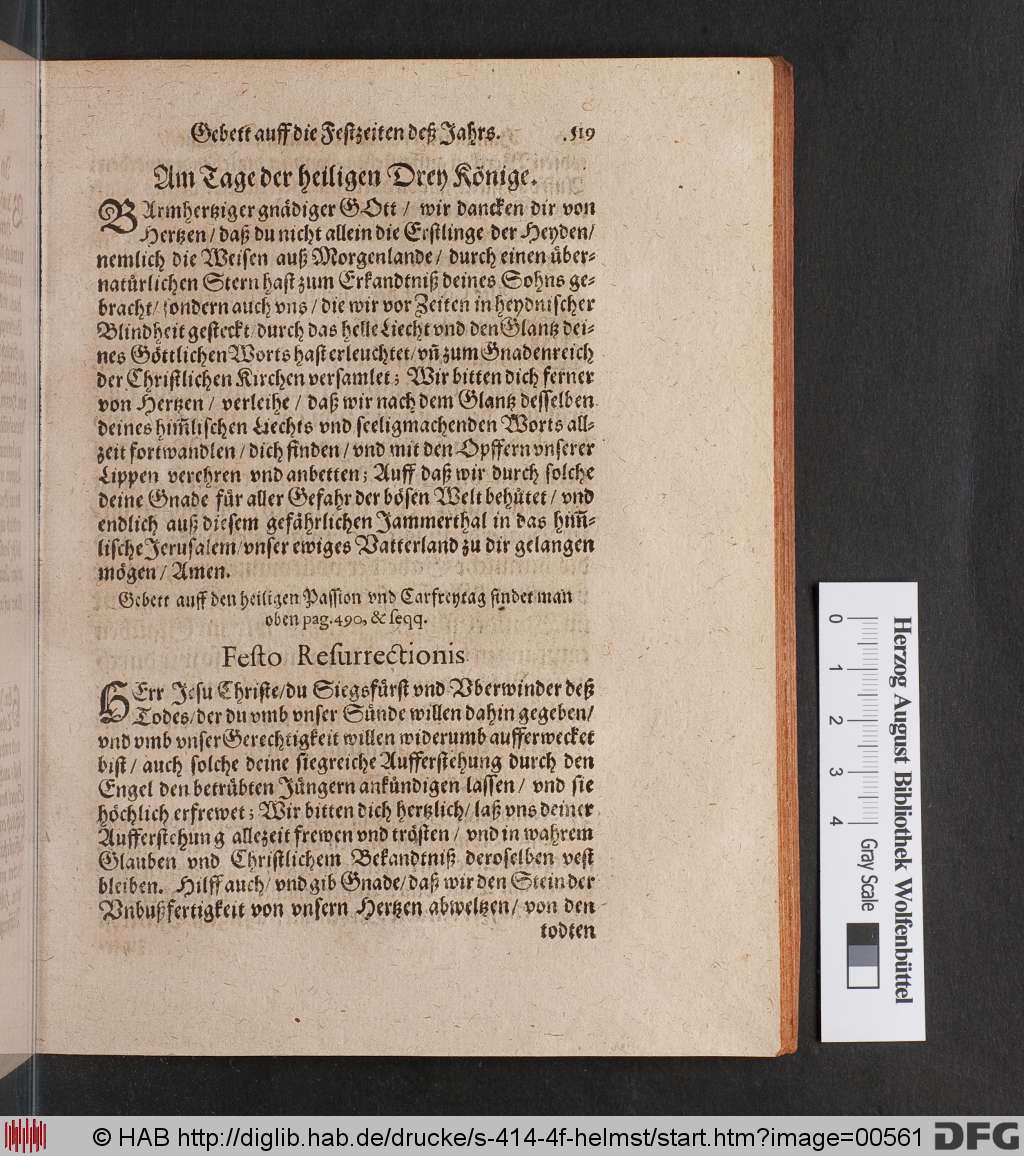 Gebett auff die Festzeiten deß Jahrs. 519
Am Tage der heiligen Drey Könige.
BArmhertziger gnädiger GOtt / wir dancken dir von
Hertzen / daß du nicht allein die Erstlinge der Heyden /
nemlich die Weisen auß Morgenlande / durch einen über-
natürlichen Stern hast zum Erkandtniß deines Sohns ge-
bracht / sondern auch vns / die wir vor Zeiten in heydnischer
Blindheit gesteckt / durch das helle Liecht vnd den Glantz dei-
nes Göttlichen Worts hast erleuchtet / vn̄ zum Gnadenreich
der Christlichen Kirchen versamlet; Wir bitten dich ferner
von Hertzen / verleihe / daß wir nach dem Glantz desselben
deines him̄lischen Liechts vnd seeligmachenden Worts all-
zeit fortwandlen / dich finden / vnd mit den Opffern vnserer
Lippen verehren vnd anbetten; Auff daß wir durch solche
deine Gnade für aller Gefahr der bösen Welt behütet / vnd
endlich auß diesem gefährlichen Jammerthal in das him̄-
lische Jerusalem / vnser ewiges Vatterland zu dir gelangen
mögen / Amen.
Gebett auff den heiligen Passion vnd Carfreytag findet man
oben pag. 490, & seqq.
Festo Resurrectionis
HErr Jesu Christe / du Siegsfürst vnd Vberwinder deß
Todes / der du vmb vnser Sünde willen dahin gegeben /
vnd vmb vnser Gerechtigkeit willen widerumb aufferwecket
bist / auch solche deine siegreiche Aufferstehung durch den
Engel den betrübten Jüngern ankündigen lassen / vnd sie
höchlich erfrewet; Wir bitten dich hertzlich / laß vns deiner
Aufferstehung allezeit frewen vnd trösten / vnd in wahrem
Glauben vnd Christlichem Bekandtniß deroselben vest
bleiben. Hilff auch / vnd gib Gnade / daß wir den Stein der
Vnbußfertigkeit von vnsern Hertzen abweltzen / von den
todten
0 1 2 3 4
Gray Scale
Herzog August Bibliothek Wolfenbüttel
© HAB http://diglib.hab.de/drucke/s-414-4f-helmst/start.htm?image=00561
DFG